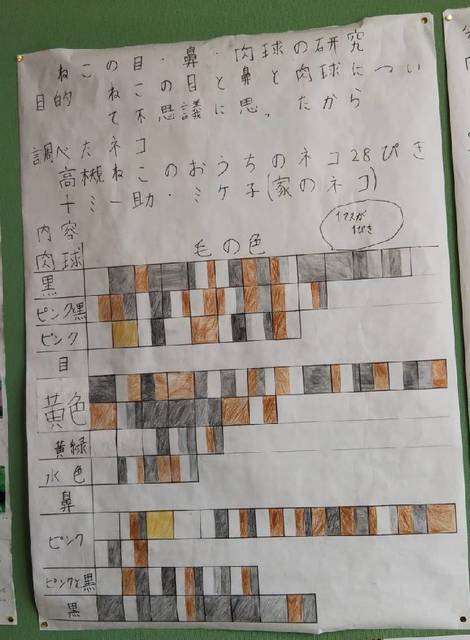 ねこの目・鼻・肉球の研究
目的 ねこの目と鼻と肉球につい
て不思議に思ったから。
調べた ネコ
高槻ねこのおうちのネコ28ぴき
十三一助・ミケ子(家のネコ)
内容
毛の色
1マスが
1ぴき
肉球
黒
ピンク黒
ピンク
目
黄色
黄緑
水色
鼻
ピンク
ピンクと黒
黒